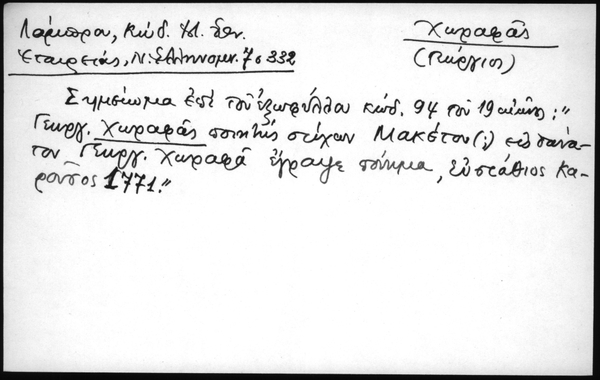 Λάμπρου, Κώδ. Ἱστ. Ἐθν.
Ἑταιρείας, Ν. Ἑλληνομν. 7ος 332
Χωραφᾶς
(Γεώργιος)
Σημείωμα ἐπὶ τοῦ ἐξωφύλλου κώδ. 94 τοῦ 19 αἰῶνος:"
Γεωργ. Χωραφᾶς ποιητὴς στίχων Μακέτου(;) εἰς θάνα-
τον Γεωργ. Χωραφᾶ ἔγραψε ποίημα, Εὐστάθιος Κα-
ροῦσος 1771."